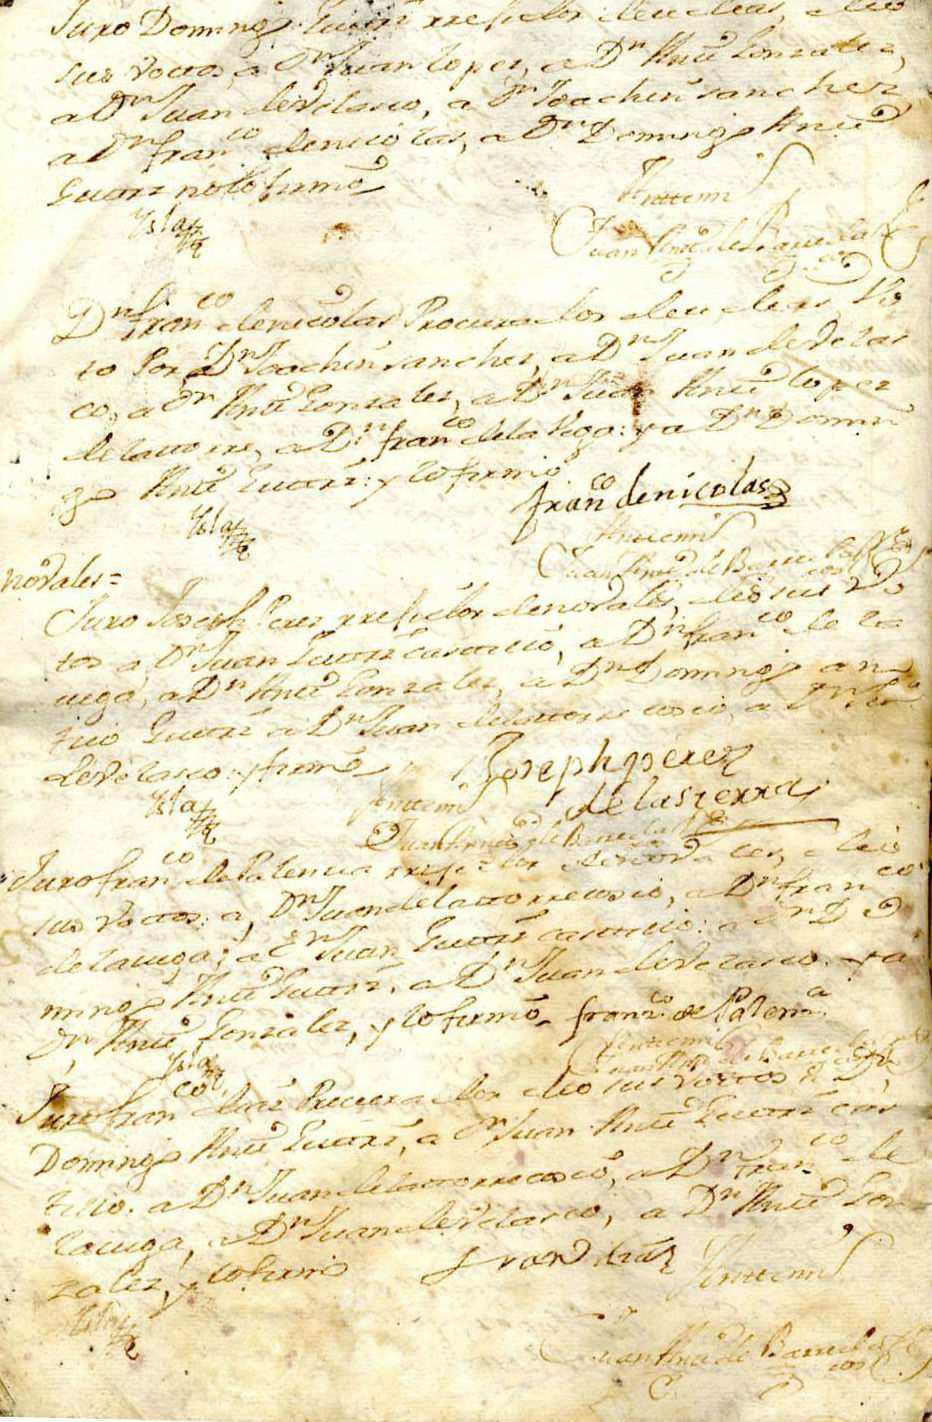 Juro Domingo Gutrz rrexidor de
sus Voctos, a Dn Juan lopez, a Dn Antto Gonzalez,
a Dn Juan de Velasco, a Dn Joachin sanchez
a Dn franco de nicolas, a Dn Domingo Antto
Gutrrz no lo firmò
Isla
Antte mi
Juan Antto de Barreda
Dn franco de nicolas Procurador de Vo
to Por, a Dn Joachin sanchez, a Dn Juan de Velas
co, a Dn Antto Gonzalez, a Dn Juan Antto lopez
de la torre, a Dn franco de la Vega: y a Dn Domin
go Antto Gutrrz: y lo firmò
franco de nicolas
Isla
Antte mi
Juan Antto de Barreda
novales=
Juro Joseph Perez rrexidor de novales, dio sus Vo
tos a Dn Juan Gutrrz castillo, a Dn franco de la
uega, a Dn Antto Gonzalez, a Dn Domingo an
ttio Gutrrz a Dn Juan de la torre cosio, a Dn Jua
de Velasco y firmò
Joseph perez
de la sierra
Isla
Antte mi
Juan Antto de Barreda
Juro franco de Palencia rrexidor de novales, dio
sus Voctos: a, Dn Juan de la torre cosio, a Dn franco
de la uega; a Dn Juan Gutrrz castillo: a Dn Do
mingo Antto Gutrrz, a Dn Juan de Velasco. y a
Dn Antto Gonzalez, y lo firmò franco de Palena
Isla
Antte mi
Juan Antto de Barreda
Juro franco diaz Procurador dio sus Voctos a Dn
Domingo Antto Gutrrz, a Dn Juan Antto Gutrrz cas
tillo. a Dn Juan de la torre cosio, a Dn franco de
la uega, a Dn Juan de Velasco, a Dn Antto Gon
zalez, y lo firmò
fran diaz
Antte mi
Isla
Juan Antto de Barreda